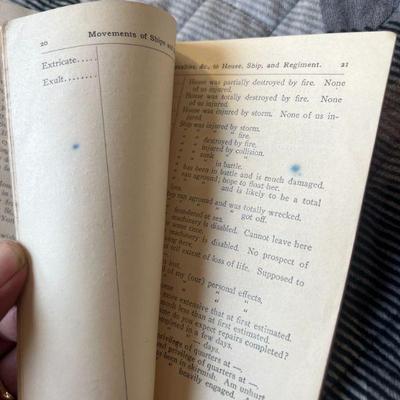 20 Movements of Ships and
Extricate.....
Exult.....
to House, Ship, and Regiment. 21
House was partially destroyed by fire. None
of us injured.
House was totally destroyed by fire. None
of us injured.
House was injured by storm. None of us in-
jured.
Ship was injured by storm.
" " " fire.
" " destroyed by fire.
" " injured by collision.
" " sunk
" " " in battle.
has been in battle and is much damaged.
ran aground; hope to float her.
" " and is likely to be a total
loss.
ran aground and was totally wrecked.
" " " got off.
foundered at sea.
machinery is disabled. Cannot leave here
some time.
machinery is disabled. No prospect of
being here.
tell extent of loss of life. Supposed to
lost.
of my (our) personal effects.
" " "
more extensive than at first estimated.
much less than at first estimated.
time do you expect repairs completed?
completed in a few days.
privilege of quarters at —.
and privilege of quarters at —.
been in skirmish. Am unhurt
heavily engaged. Am